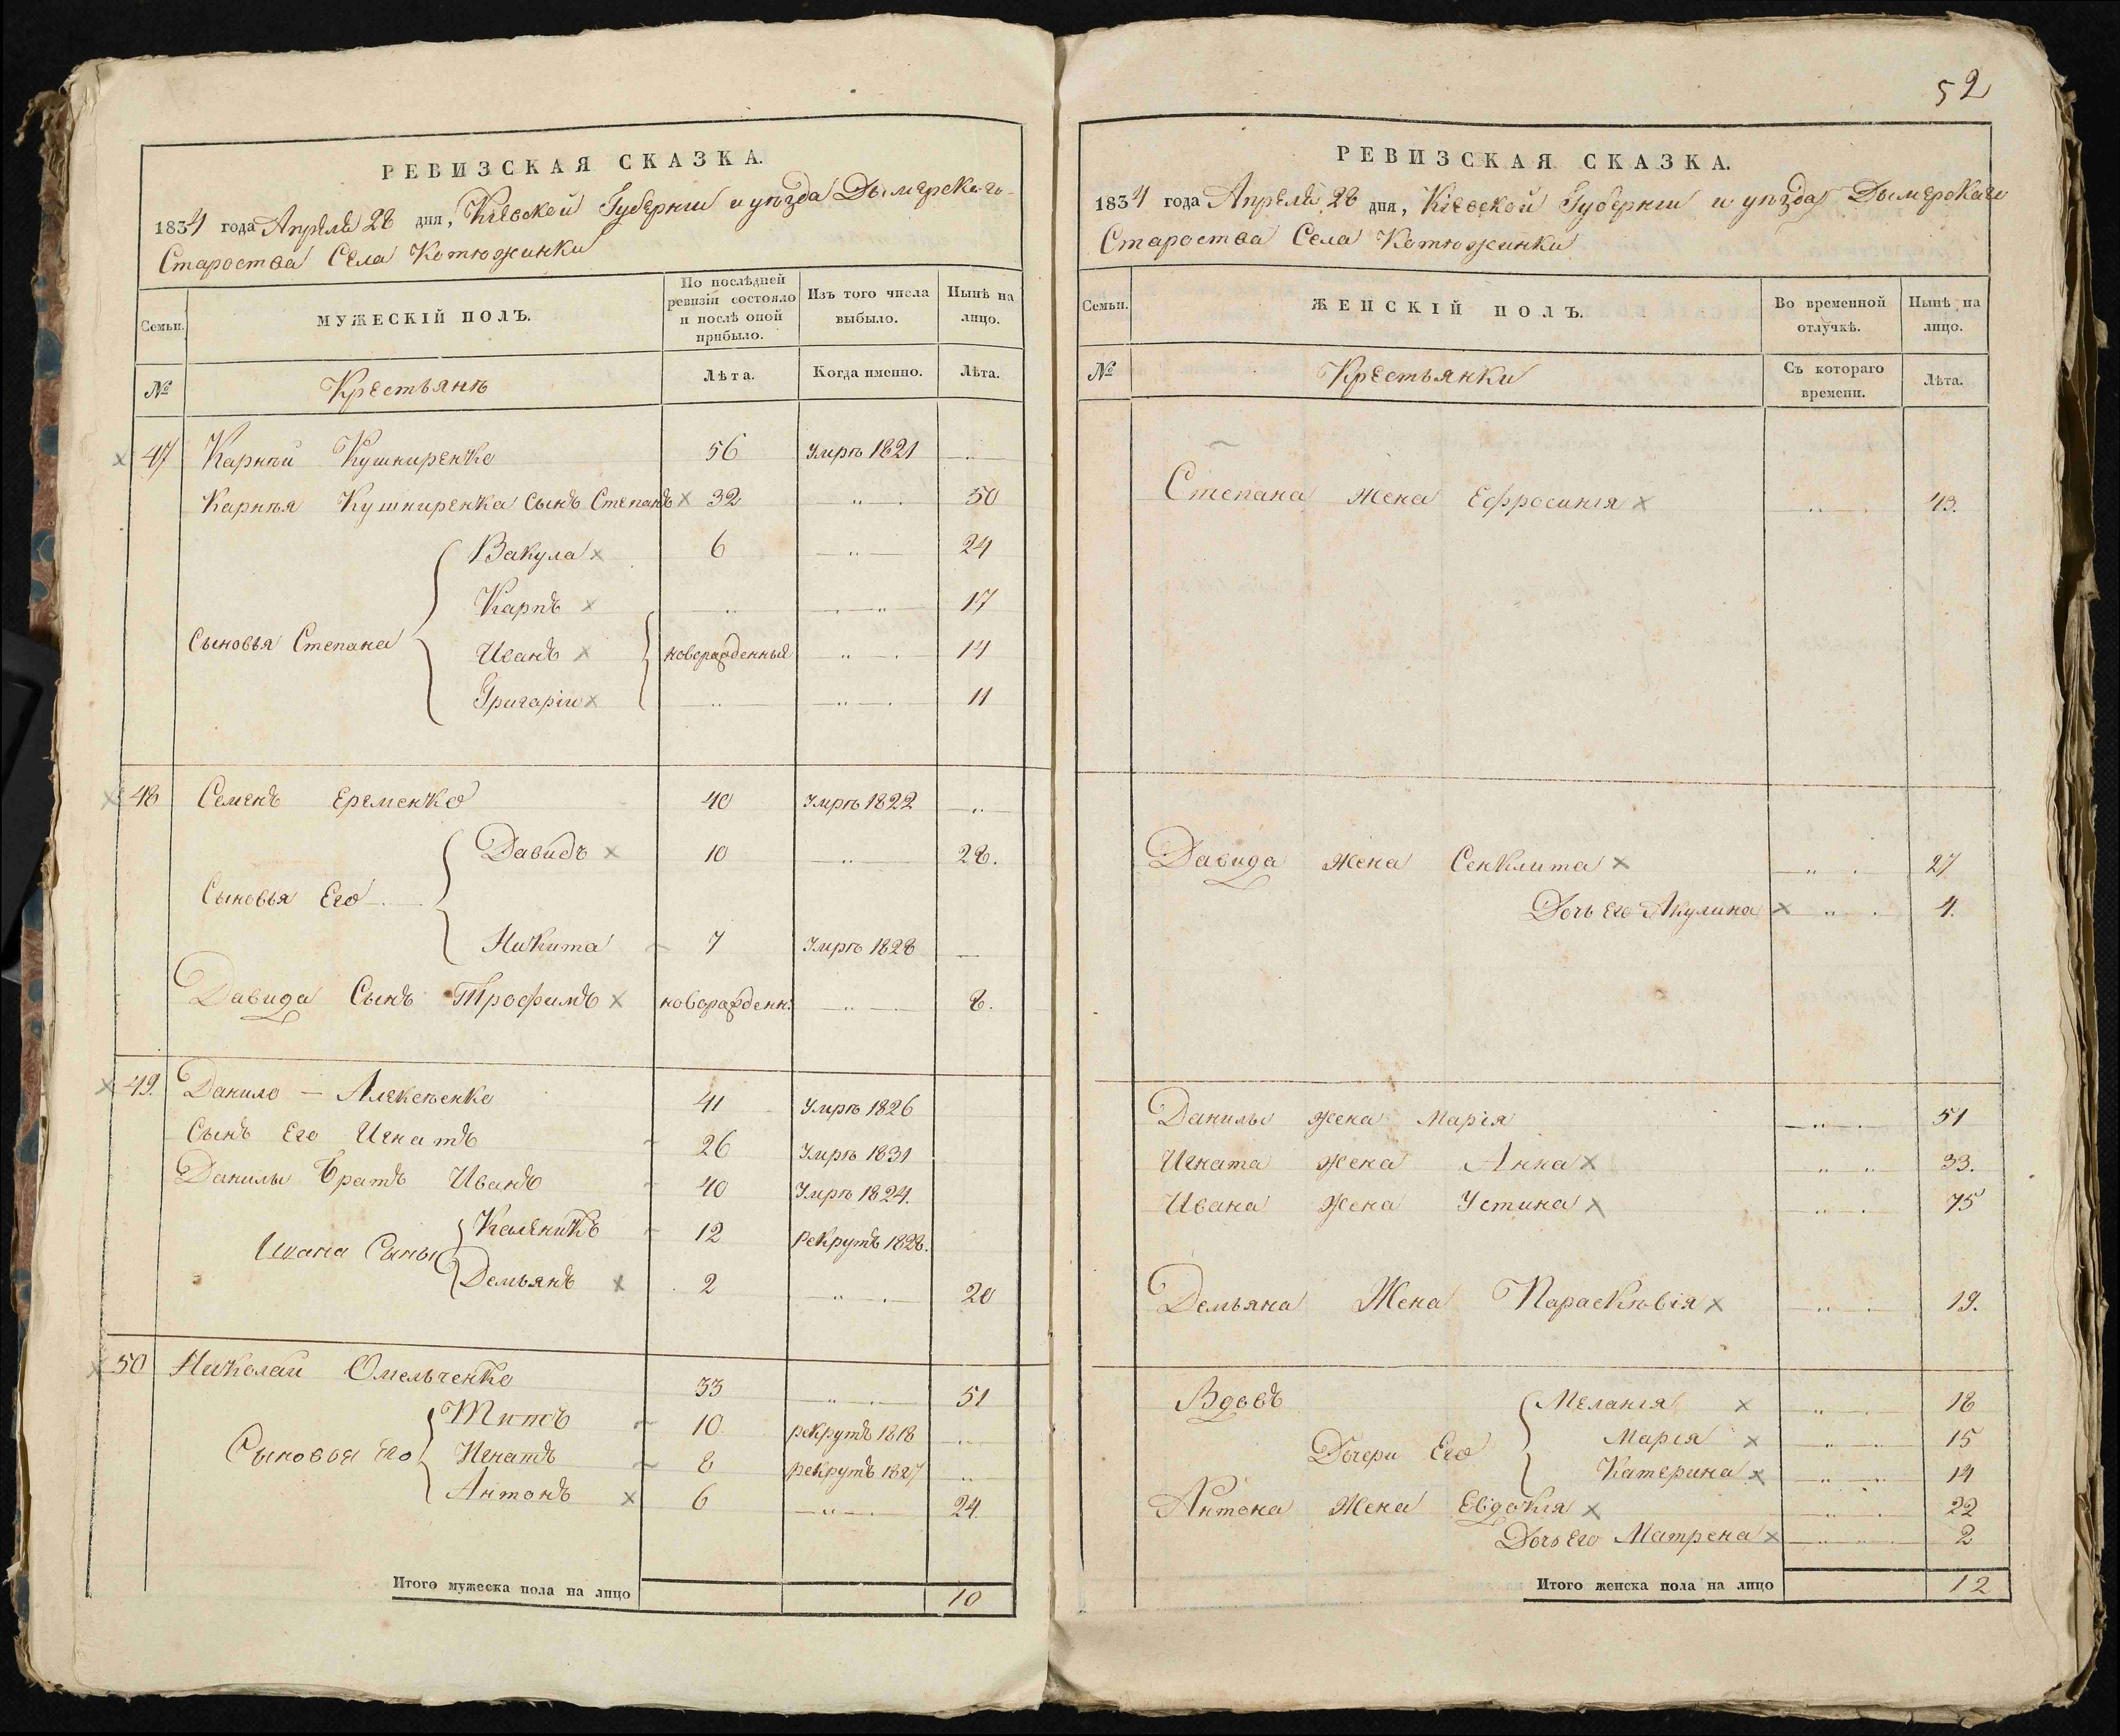 РЕВИЗСКАЯ СКАЗКА.
1834 года Апреля 28 дня, Кіевской Губерніи и уѣзда Дымерскаго
Староства Села Котюжинки
Семьи.
МУЖЕСКІЙ ПОЛЪ.
По послѣдней ревизіи состояло и послѣ оной прибыло.
Изъ того числа выбыло.
Нынѣ на лицо.
№
Крестьянѣ
Лѣта.
Когда именно.
Лѣта.
47 Карнѣй Кушниренко 56 Умрѣ 1821 ..
Карнѣя Кушниренка сынъ Степанъ 32 .. 50
Вакула 6 .. 24
Карпъ .. .. 17
Сыновья Степана Иванъ новорожденныя .. 14
Григорій .. .. 11
48 Семенъ Еременко 40 Умрѣ 1822 ..
Давидъ 10 .. 28.
Сыновья Его
Никита 7 Умрѣ 1828
Давида Сынъ Трофимъ новорожденн: .. 8.
49. Данило — Алексѣенко 41 Умрѣ 1826
Сынъ Его Игнатъ 26 Умрѣ 1831
Данилы Братъ Иванъ 40 Умрѣ 1824.
Каленикъ 12 рекрутъ 1828.
Ивана Сыны
Демьянъ 2 .. 20
50 Николай Омельченко 33 .. 51
Титъ 10 рекрутъ 1818 ..
Сыновья Его Игнатъ 8 рекрутъ 1827 ..
Антонъ 6 .. 24.
Итого мужеска пола на лицо 10
52
РЕВИЗСКАЯ СКАЗКА.
1834 года Апреля 28 дня, Кіевской Губерніи и уѣзда Дымерскаго
Староства Села Котюжинки
Семьи.
ЖЕНСКІЙ ПОЛЪ.
Во временной отлучкѣ.
Нынѣ на лицо.
№
Крестьянки
Съ котораго времени.
Лѣта.
Степана жена Ефросинія .. 43.
Давида жена Сенклита .. 27
Дочь его Акулина .. 4.
Данилы жена Марія .. 51
Игната жена Анна .. 33.
Ивана жена Устина .. 75
Демьяна Жена Параскѣвія .. 19.
Вдовъ Меланія .. 18
Дочери Его Марія .. 15
Катерина .. 14
Антона Жена Евдокія .. 22
Дочь его Матрена .. 2
Итого женска пола на лицо 12